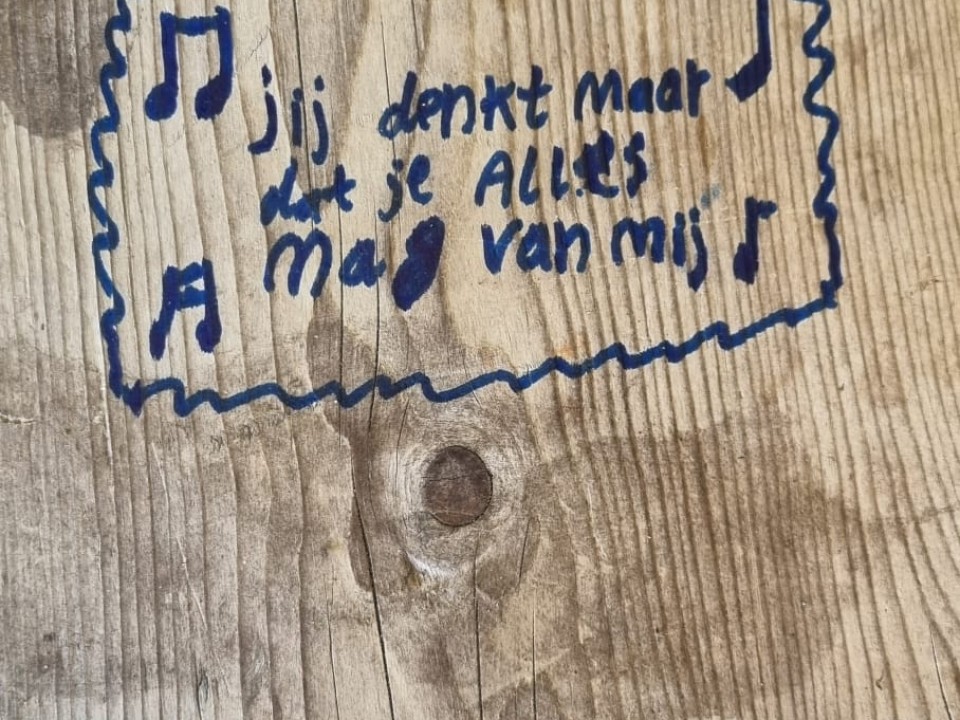 jij denkt maar
dat je ALLes
mag van mij